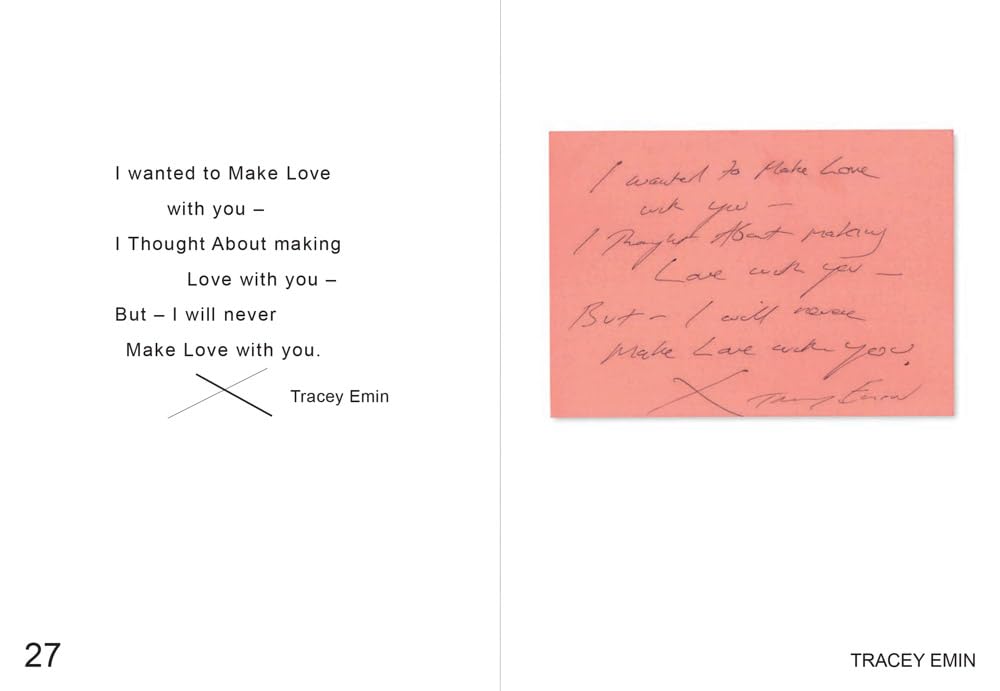 I wanted to Make Love
with you –
I Thought About making
Love with you –
But – I will never
Make Love with you.
Tracey Emin
27
I wanted to Make Love
with you —
I Thought About making
Love with you —
But – I will never
Make Love with you.
X Tracey Emin
TRACEY EMIN